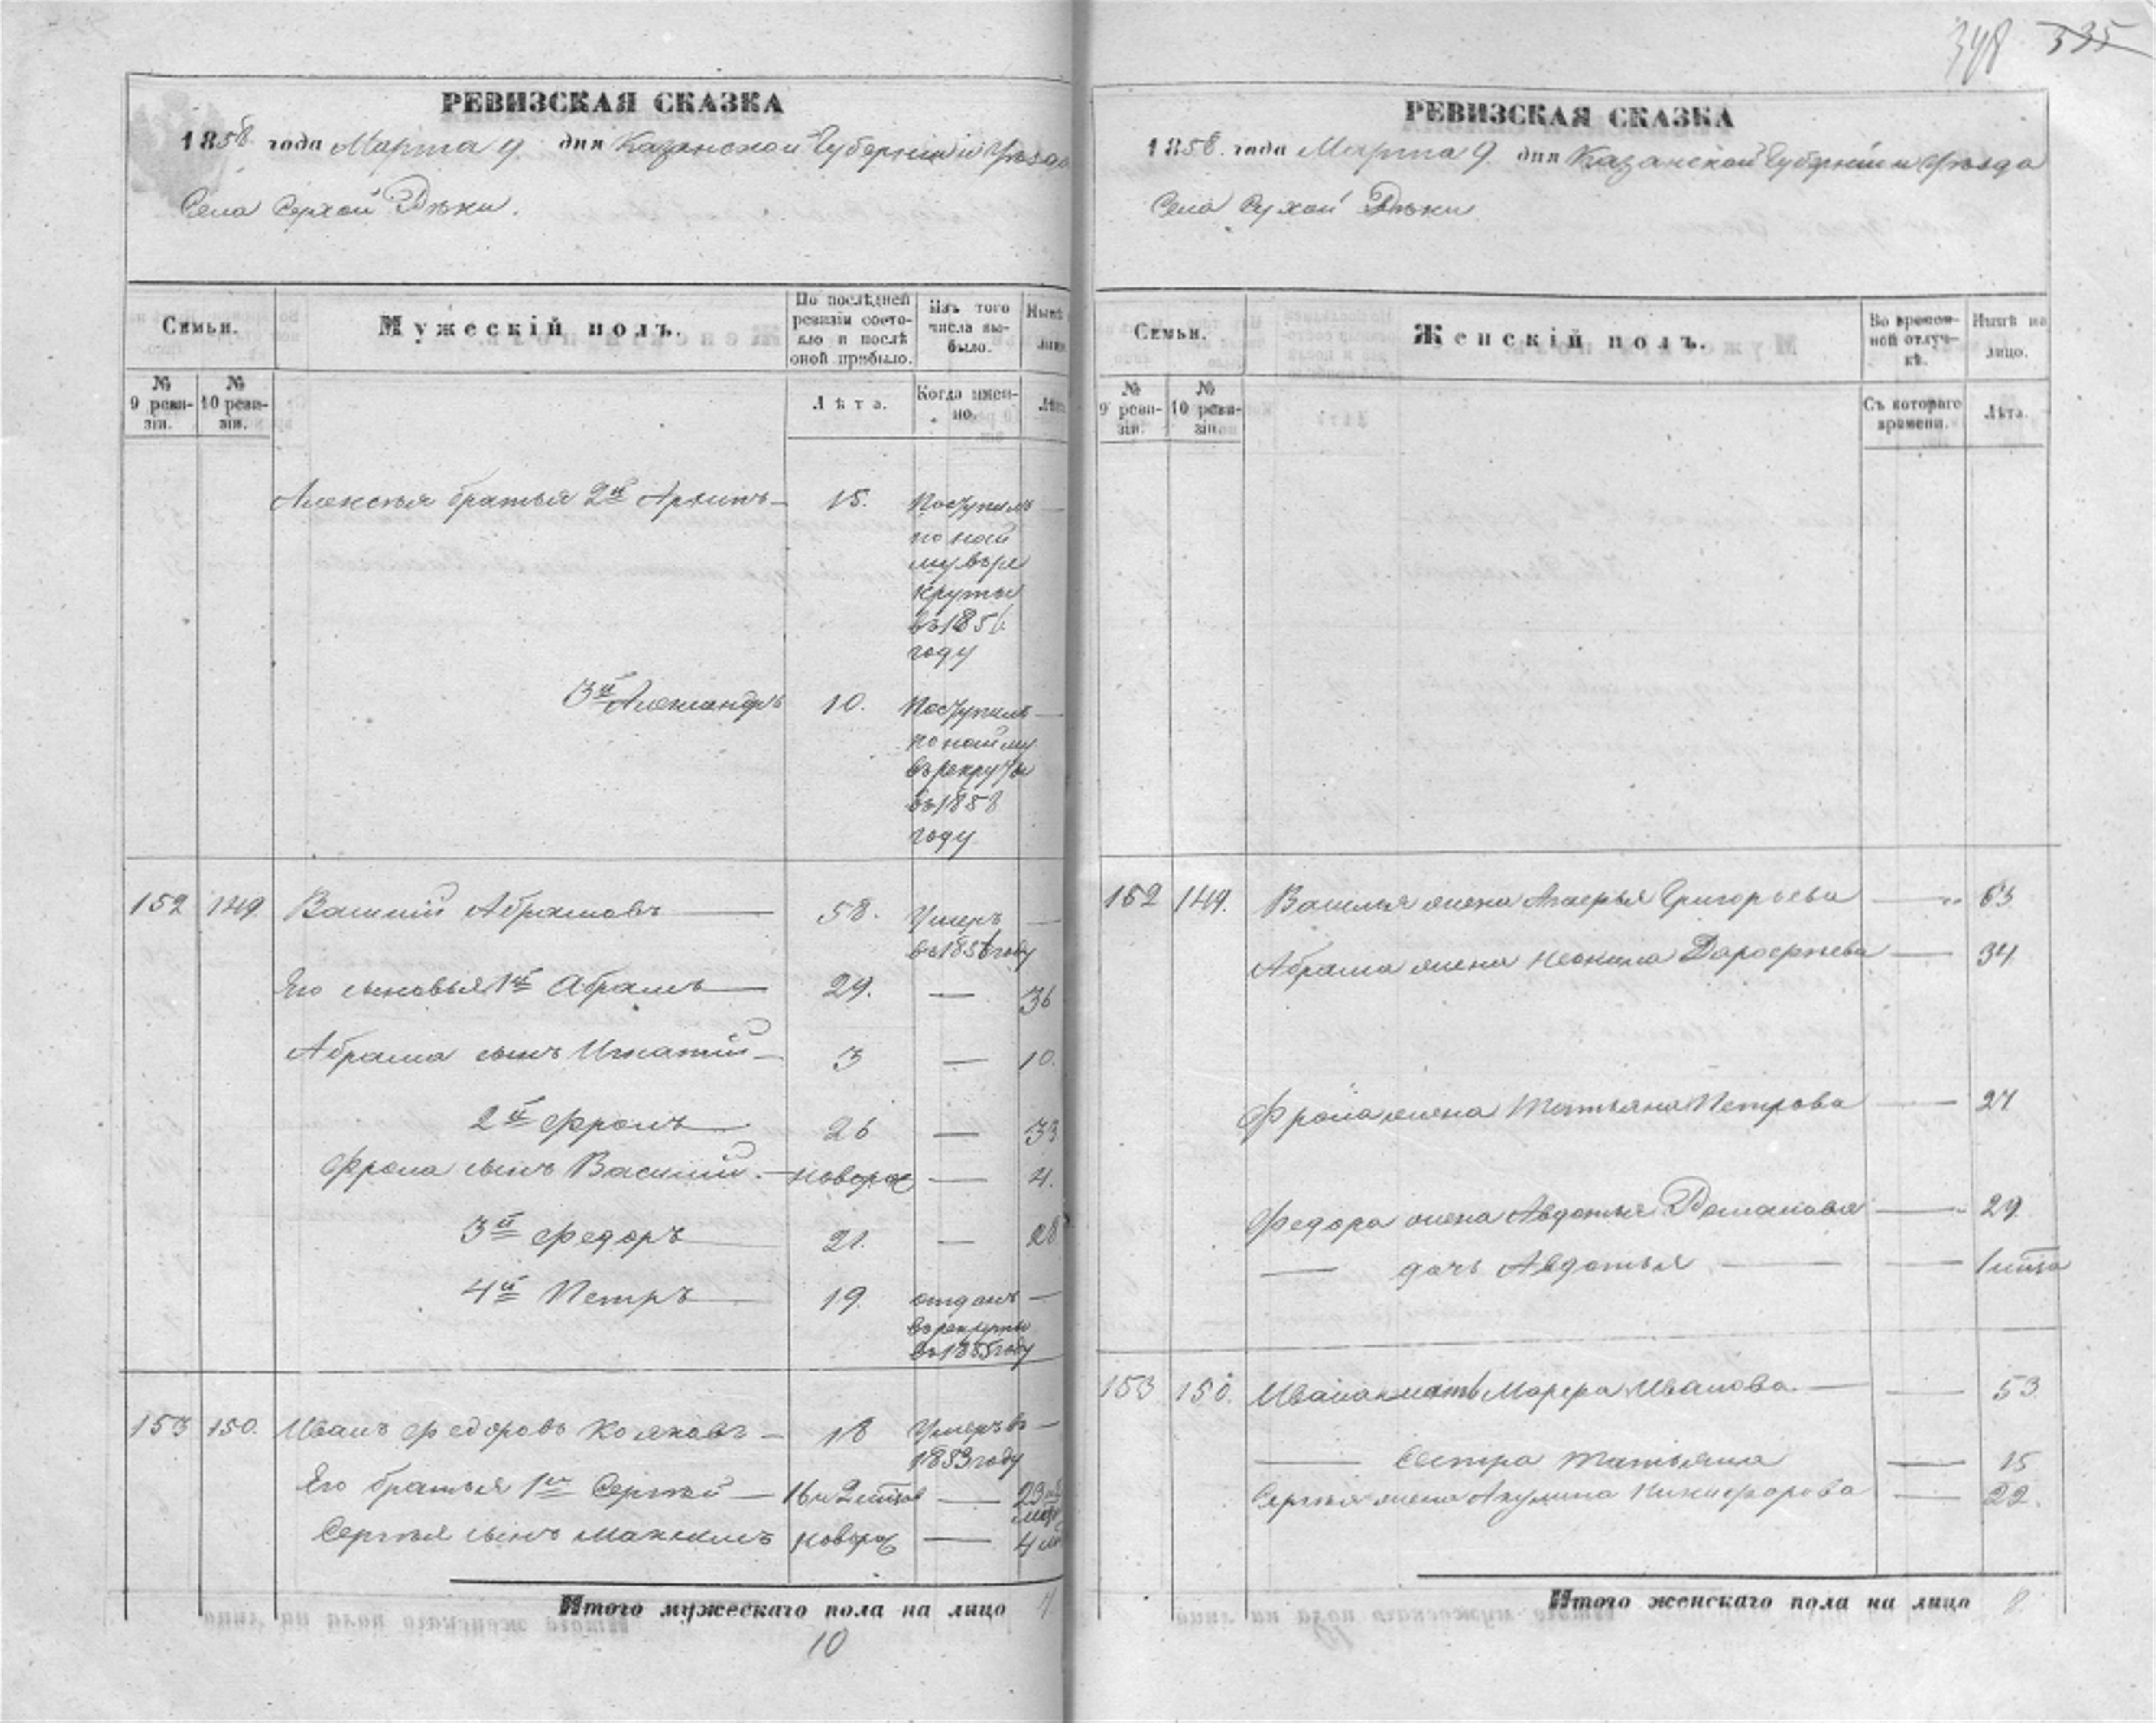 348 335
РЕВИЗСКАЯ СКАЗКА
1858 года Марта 9 дня Казанской Губерніи и Уѣзда
Села Сухой Рѣки.
Семьи.
Мужескій полъ.
По послѣдней ревизіи состояло и послѣ оной прибыло.
Изъ того числа выбыло.
Нынѣ
лицо
№ 9 ревизіи.
№ 10 ревизіи.
Лѣта.
Когда именно.
Лѣта
Алексѣя братья 2й Архипъ 15. Поступилъ —
по най
му въ ре
круты
въ 1856
году
3й Александръ 10. Поступилъ —
по найму
въ рекруты
въ 1858
году
152 149 Василій Абрамовъ — 58. Умеръ —
въ 1856 году
Его сыновья 1й Абрамъ — 29. — 36
Абрама сынъ Игнатій — 3 — 10.
2й Фролъ — 26 — 33
Фрола сынъ Василій. — новорож — 4.
3й Федоръ — 21. — 28
4й Петръ — 19. отданъ —
въ рекруты
въ 1855 году
153 150. Иванъ Федоровъ — 18 Умеръ въ —
1853 году
Его братья 1й Сергѣй — 16 и 2 мѣсяц — 23
Сергѣя сынъ Максимъ новорож — 4 м
Итого мужескаго пола на лицо
10
РЕВИЗСКАЯ СКАЗКА
1858. года Марта 9. дня Казанской Губерніи и Уѣзда
Села Сухой Рѣки
Семьи.
Женскій полъ.
Во временной отлучкѣ.
Нынѣ на лицо.
№ 9 ревизіи.
№ 10 ревизіи.
Съ котораго времени.
Лѣта.
152 149. Василья жена Григорьева — 63
Абрама жена Неонила Дорофеева — 34
Фрола жена Татьяна Петрова — 27
Федора жена Авдотья Романова — 29
— дочь Авдотья — — 1 мѣся
153 150. Ивана мать Марфа Иванова — — 53
— сестра Татьяна — 15
Сергѣя жена Акулина Никифорова — 22.
Итого женскаго пола на лицо 8